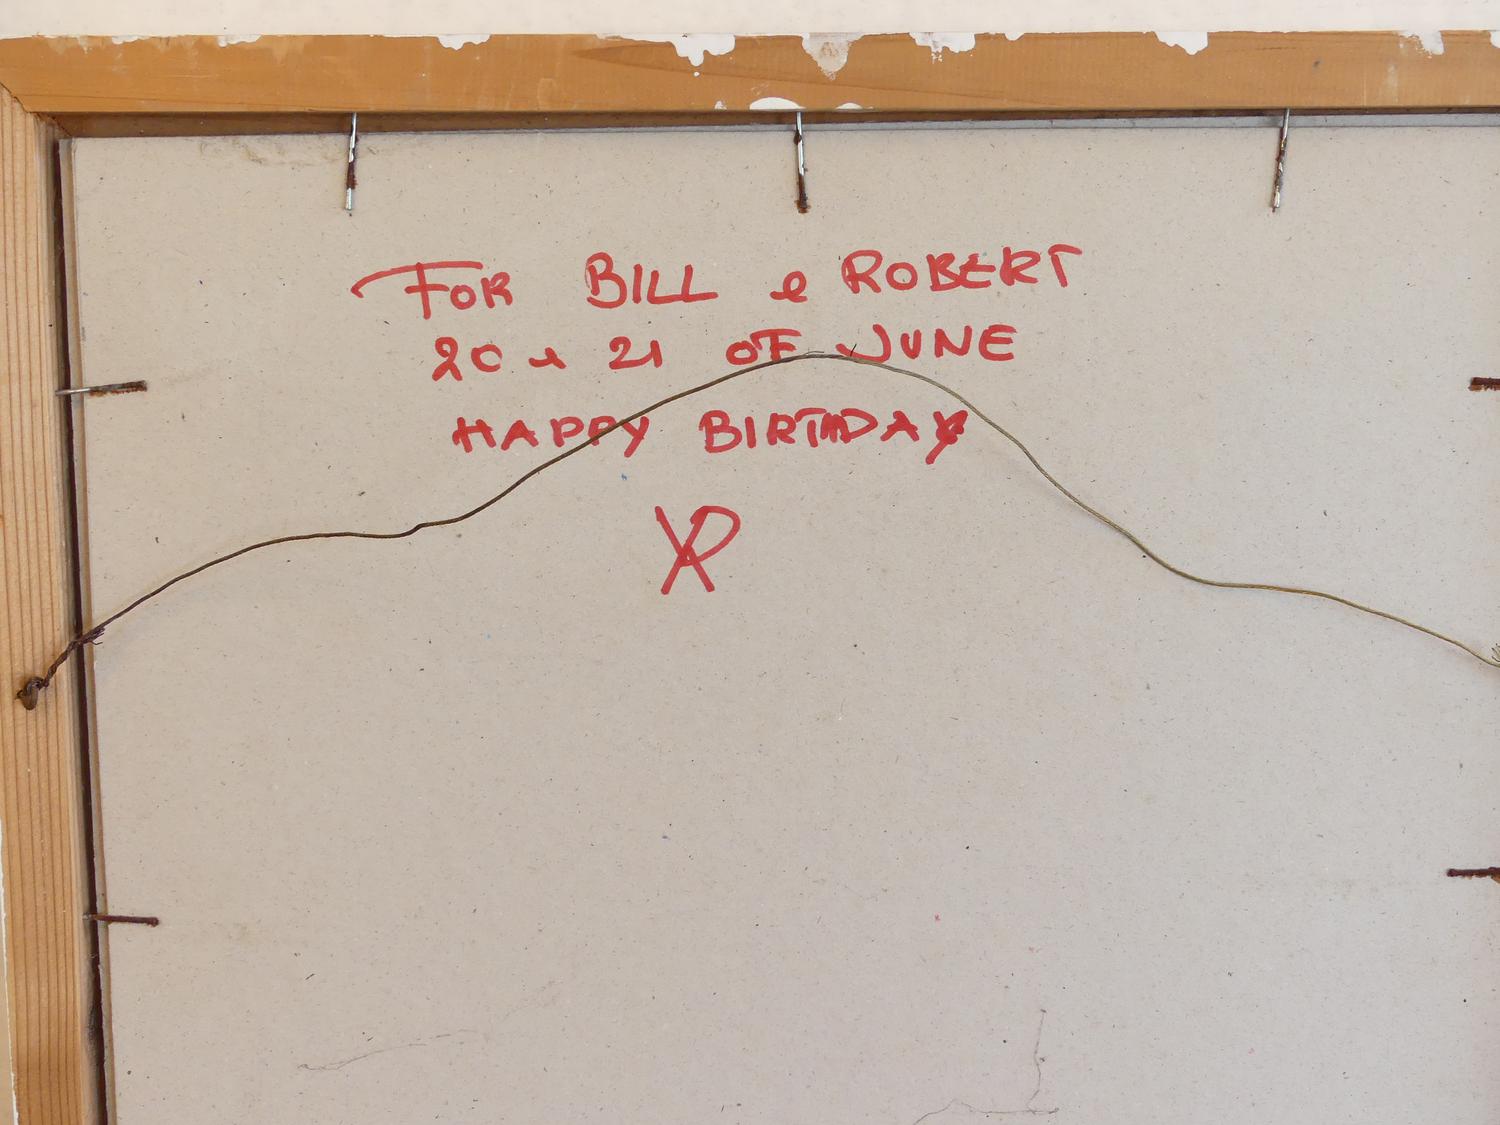 FOR BILL e ROBERT
20 e 21 OF JUNE
HAPPY BIRTHDAY